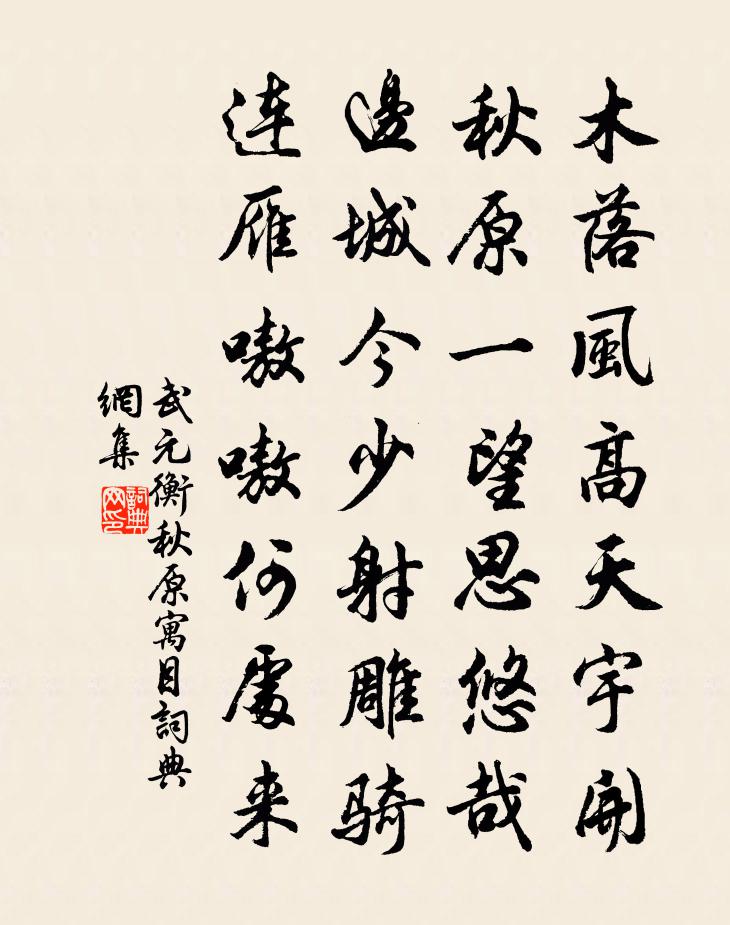 木落風高天宇開
秋原一望思悠哉
邊城今少射雕骑
连雁嗷嗷何處来
武元衡秋原寓目詞典
網集
詞典
网印